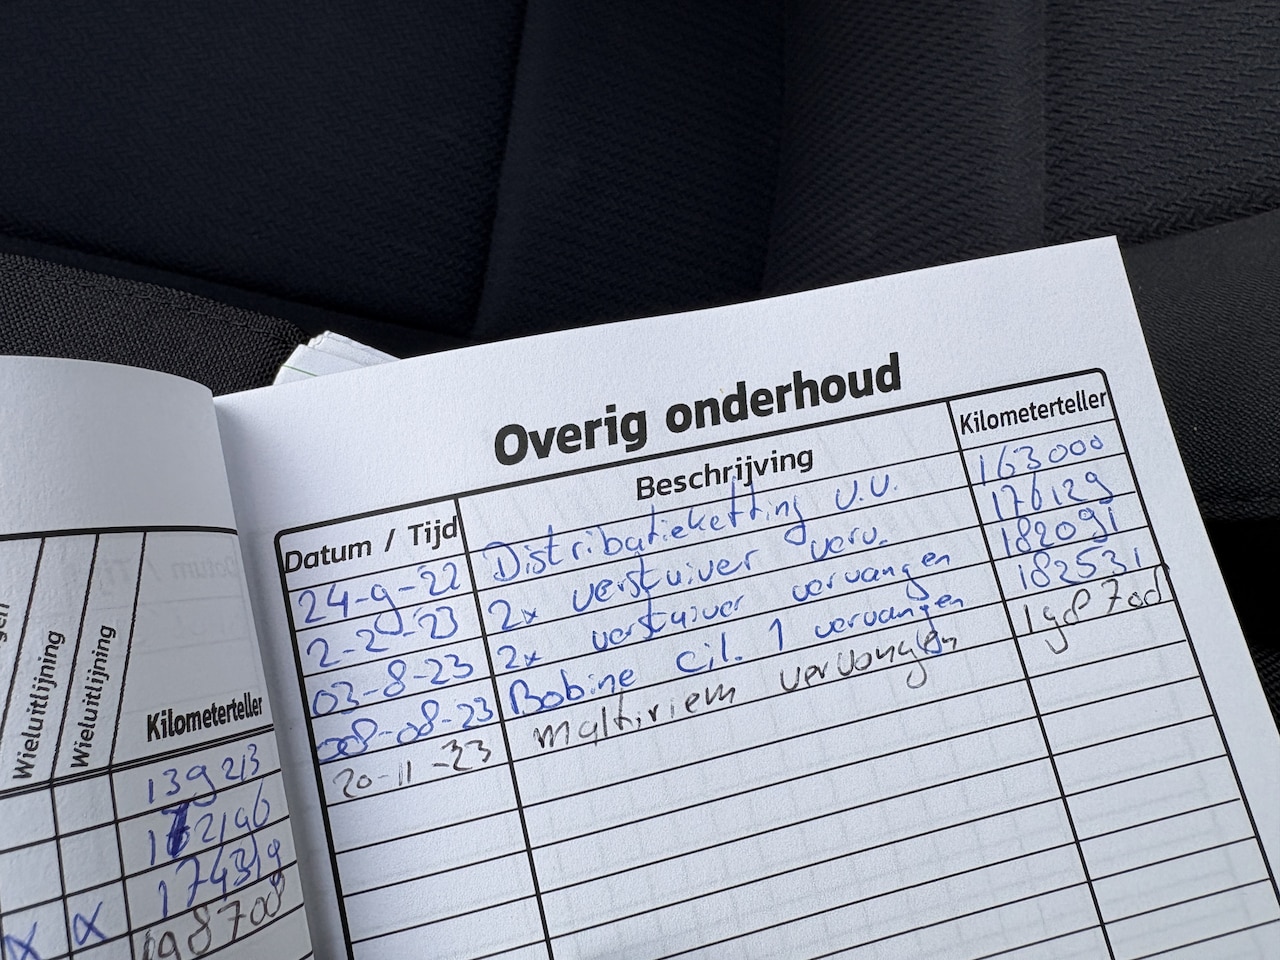 Wieluitlijning
Wieluitlijning
Kilometerteller
139213
174319
x x 198700
Overig onderhoud
Datum / Tijd Beschrijving Kilometerteller
24-9-22 Distributieketting v.v. 163000
2-2-23 2x verstuiver verv. 176129
03-8-23 2x verstuiver vervangen 182091
08-08-23 Bobine cil. 1 vervangen 182531
20-11-23 multiriem vervangen 198700